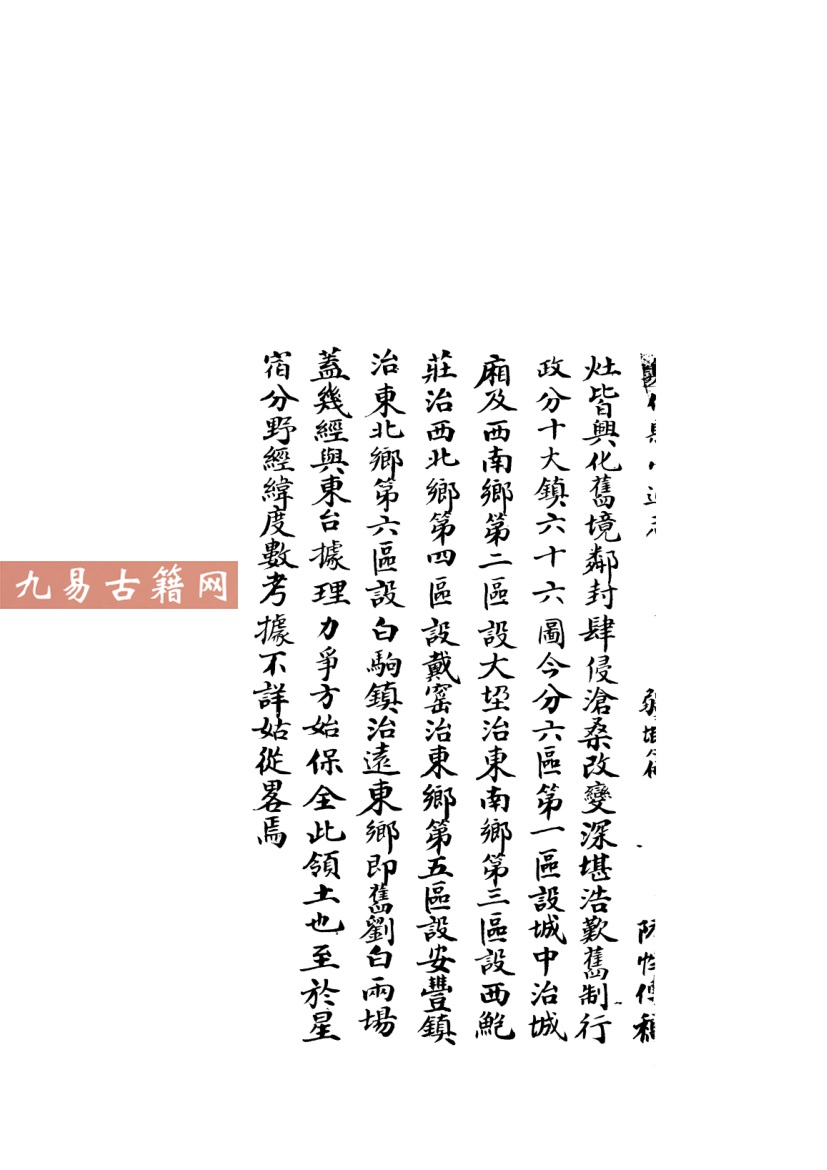 灶皆興化舊境鄰封肆侵滄桑改變深堪浩歎舊制行
政分十大鎮六十六圖今分六區第一區設城中治城
廂及西南鄉第二區設大垩治東南鄉第三區設西鮑
莊治西北鄉第四區設戴窰治東鄉第五區設安豐鎮
治東北鄉第六區設白駒鎮治遠東鄉即舊劉白兩場
蓋幾經與東台據理力爭方始保全此領土也至於星
宿分野經緯度數考據不詳姑從畧焉
九易古籍网